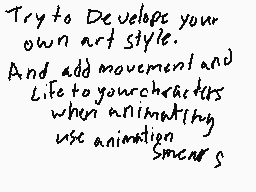 Try to Develope your
own art style.
And add movement and
Life to your charecters
when animating
use animation
Smears